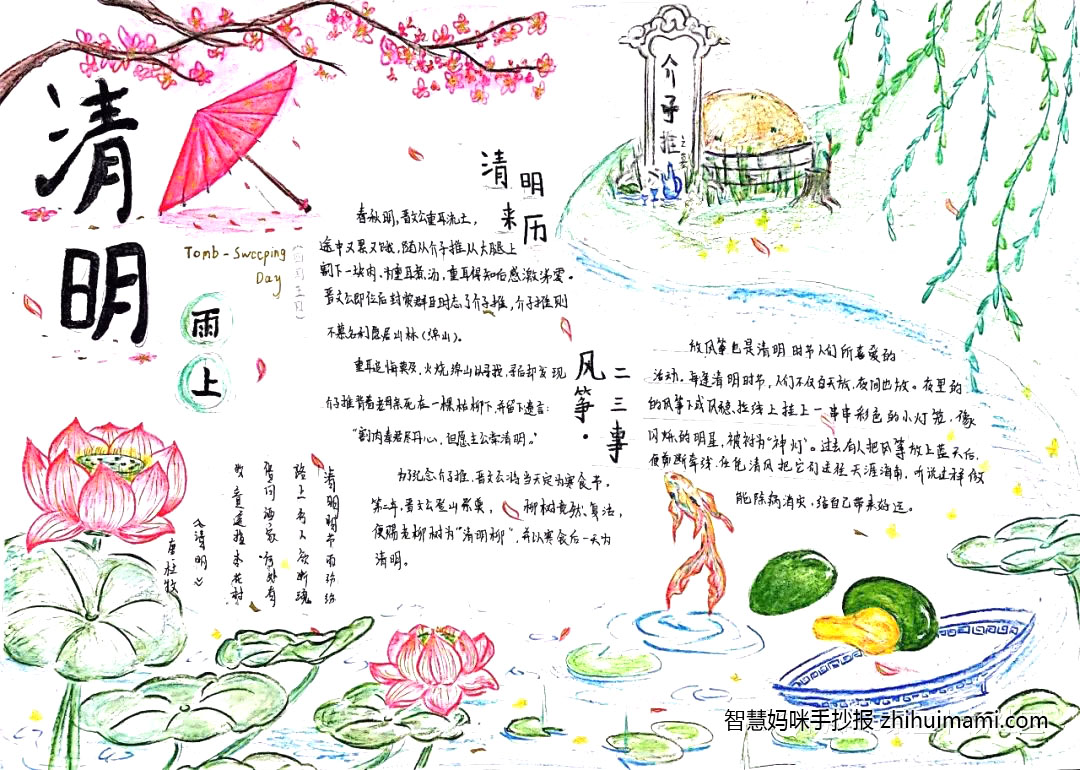 清
明
雨
上
Tomb-Sweeping
Day
介子推
清明
来历
春秋明,晋文公重耳流亡,
途中又累又饿,随从介子推从大腿上
割下一块肉,为重耳煮汤,重耳得知后感激
晋文公即位后封赏群臣时忘了介子推,介子推则
不慕名利愿居山林(绵山)。
重耳追悔莫及,火烧绵山以寻找,寻后却发现
介子推背着老母亲死在一棵枯柳下,并留下遗言:
“割肉奉君尽丹心,但愿主公常清明。”
为纪念介子推,晋文公将当天定为寒食节,
第二年,晋文公登山祭奠, 柳树竟然复活,
便赐老柳树为“清明柳”,并以寒食后一天为
清明。
风筝·
二三事
放风筝也是清明时节人们所喜爱的
活动,每逢清明时节,人们不仅白天放,夜间也放。夜里的
的风筝下或风稳拉线上挂上一串串彩色的小灯笼,像
闪烁的明星,被称为“神灯”。过去有人把风筝放上蓝天后,
便剪断牵线,任凭清风把它们送往天涯海角,听说这样做
能除病消灾,给自己带来好运。
《清明》
唐 杜牧
清明时节雨纷纷
路上行人欲断魂
借问酒家何处有
牧童遥指杏花村
智慧妈咪手抄报-zhihuimami.com